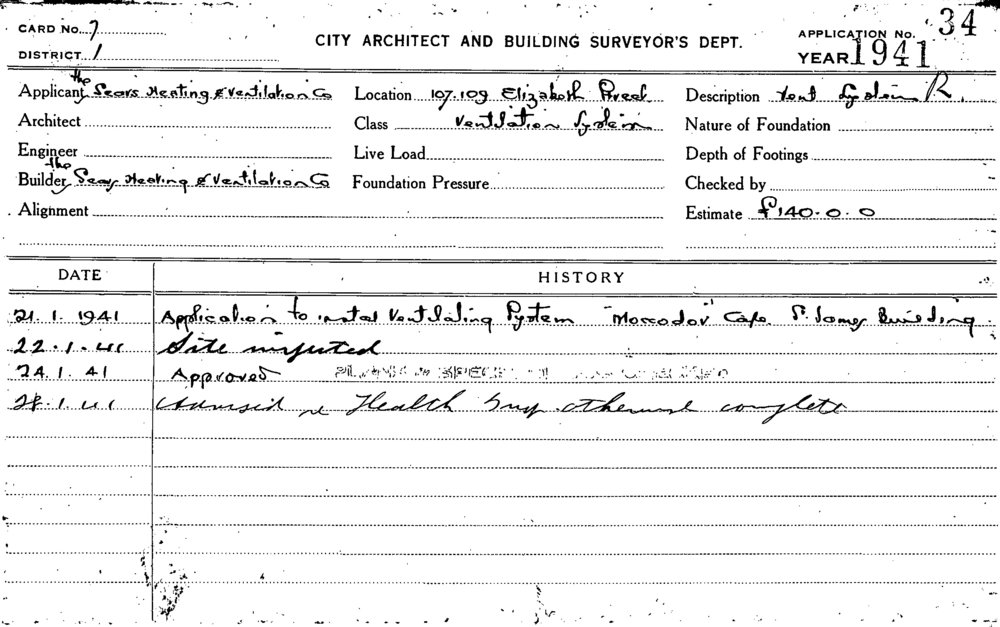 CARD No. 7
DISTRICT 1
CITY ARCHITECT AND BUILDING SURVEYOR'S DEPT.
APPLICATION No. 34
YEAR 1941
Applicant the Sears Heating & Ventilation Co
Location 107.109 Elizabeth Street
Description Vent System R.
Architect
Class Ventilation System
Nature of Foundation
Engineer
Live Load
Depth of Footings
Builder the Sears Heating & Ventilation Co
Foundation Pressure
Checked by
Alignment
Estimate £140.0.0
DATE HISTORY
21.1.1941 Application to instal Ventilating System "Moccador" Cafe. St. James Building.
22.1.41 Site inspected
24.1.41 Approved PLANS & SPEC
28.1.41 re Health otherwise complete